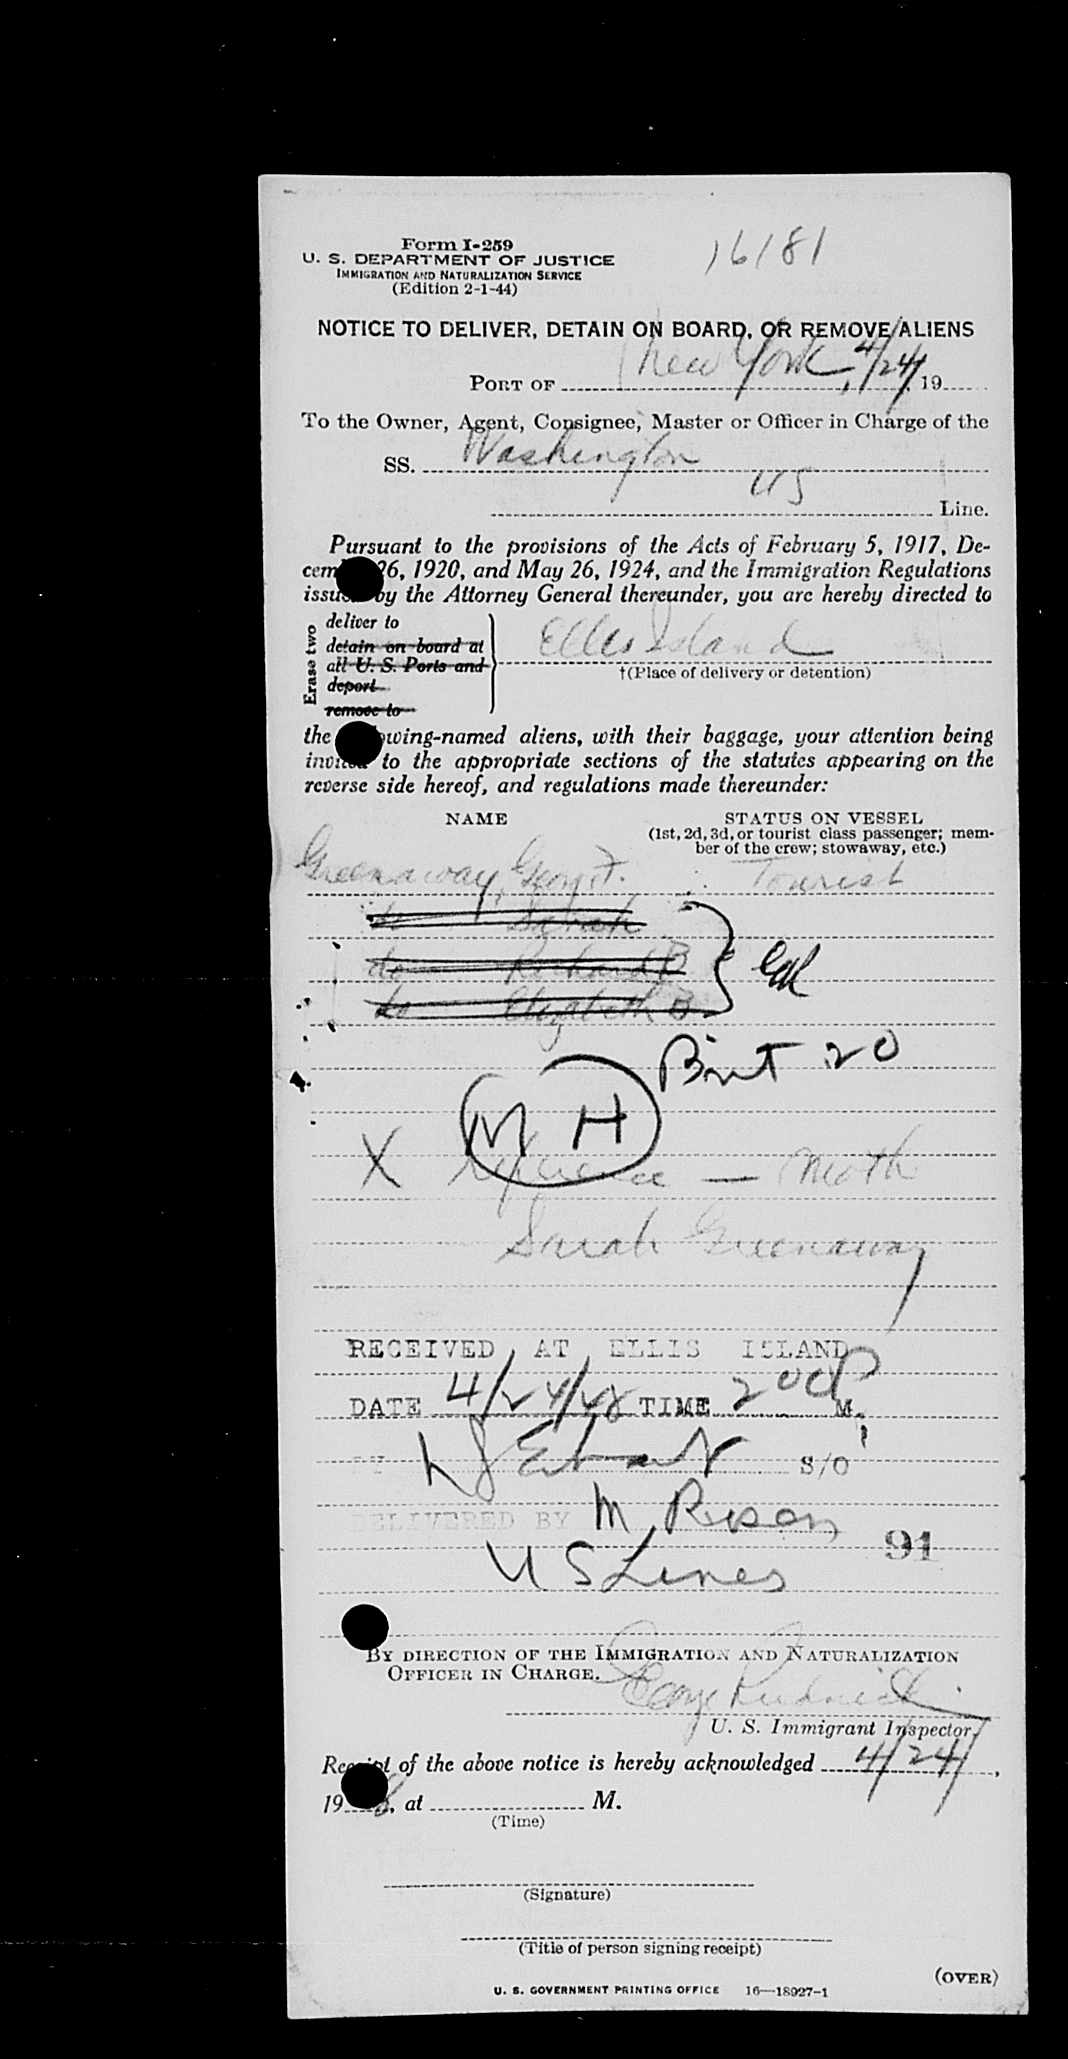 Form I-259
16181
U. S. DEPARTMENT OF JUSTICE
IMMIGRATION AND NATURALIZATION SERVICE
(Edition 2-1-44)
NOTICE TO DELIVER, DETAIN ON BOARD, OR REMOVE ALIENS
PORT OF New York, 4/24/, 19
To the Owner, Agent, Consignee, Master or Officer in Charge of the
SS. Washington
US Line.
Pursuant to the provisions of the Acts of February 5, 1917, De-
cem 26, 1920, and May 26, 1924, and the Immigration Regulations
issu by the Attorney General thereunder, you are hereby directed to
Erase two
deliver to
detain on board at
all U. S. Ports and
deport
remove to
Ellis Island
†(Place of delivery or detention)
the wing-named aliens, with their baggage, your attention being
invi to the appropriate sections of the statutes appearing on the
reverse side hereof, and regulations made thereunder:
NAME STATUS ON VESSEL
(1st, 2d, 3d, or tourist class passenger; mem-
ber of the crew; stowaway, etc.)
Greenaway, F. Tourist
do Sarah
do Richard B
do Elizabeth B
Brit 20
M H
X reference — Moth
Sarah Greenaway
RECEIVED AT ELLIS ISLAND
DATE 4/24/48 TIME 2 00 P M.
BY S/O
DELIVERED BY M
91
US Lines
BY DIRECTION OF THE IMMIGRATION AND NATURALIZATION
OFFICER IN CHARGE.
George Rudnick
U. S. Immigrant Inspector.
Rec t of the above notice is hereby acknowledged 4/24/,
19 8, at M.
(Time)
(Signature)
(Title of person signing receipt)
(OVER)
U. S. GOVERNMENT PRINTING OFFICE 16—18927-1